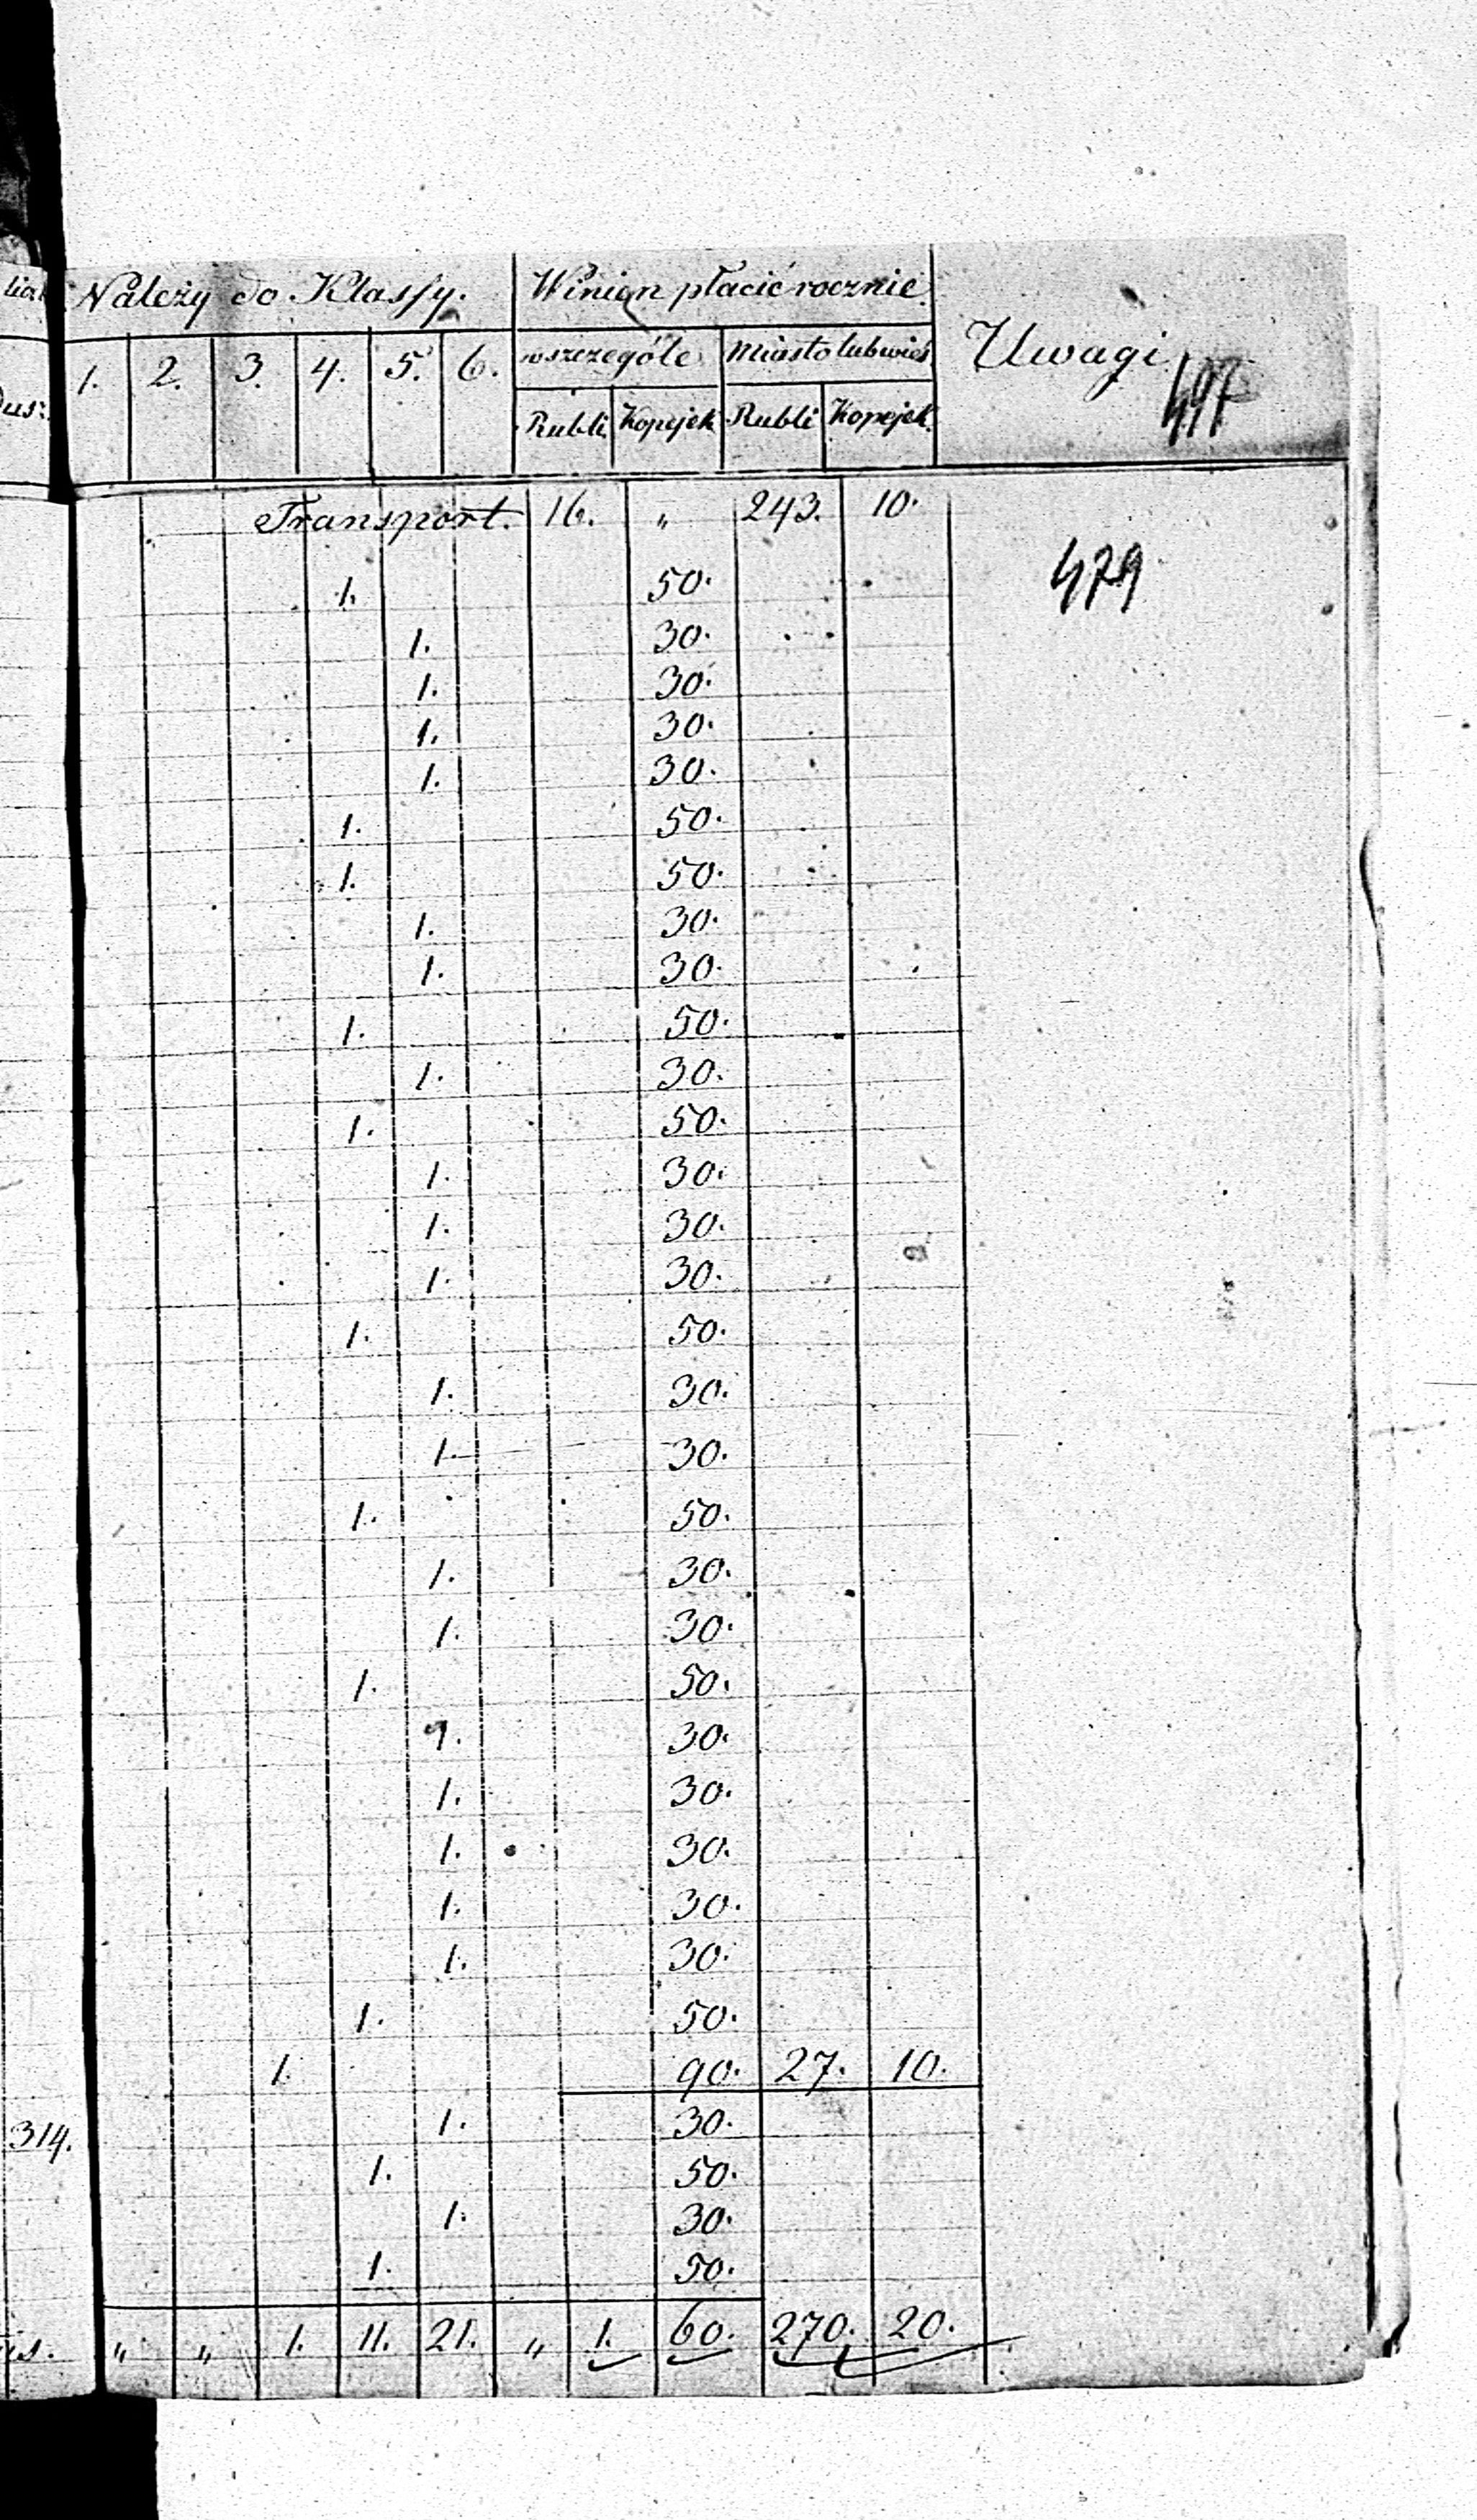 Należy do Klassy. Winien płacić rocznie Uwagi
1. 2. 3. 4. 5. 6. w szczególe Miasto lub wieś 497
Rubli Kopejek Rubli Kopejek
Transport. 16. „ 243. 10.
479
1. 50.
1. 30.
1. 30.
1. 30.
1. 30.
1. 50.
1. 50.
1. 30.
1. 30.
1. 50.
1. 30.
1. 50.
1. 30.
1. 30.
1. 30.
1. 50.
1. 30.
1. 30.
1. 50.
1. 30.
1. 30.
1. 50.
1. 30.
1. 30.
1. 30.
1. 30.
1. 30.
1. 50.
1. 90. 27. 10.
314. 1. 30.
1. 50.
1. 30.
1. 50.
„ „ 1. 11. 21. „ 1. 60. 270. 20.